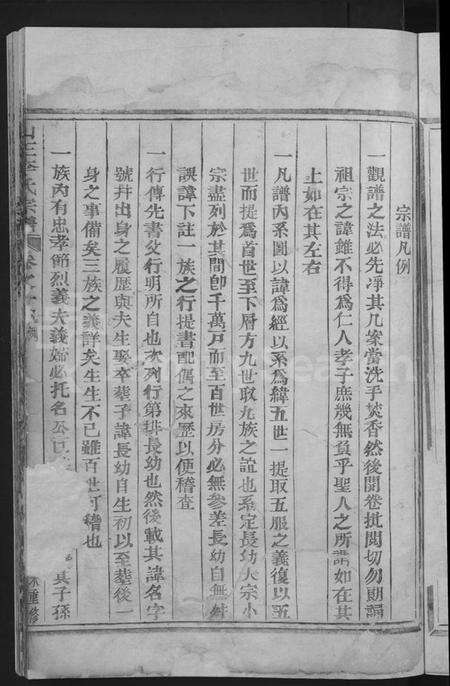 宗譜凡例
一觀譜之法必先淨其几案嘗洗手焚香然後開卷批閱切勿朗誦
祖宗之諱雖不得為仁人孝子庶幾無負乎聖人之所謂如在其
上如在其左右
一凡譜內系圖以諱為經以系為緯五世一提取五服之義復以五
世而提為首世至下層方九世取九族之誼也系定長幼大宗小
宗盡列於其間卽千萬戸而至百世房分必無參差長幼自無紊
誤諱下註一族之行提書配偶之來歷以便稽查
一行傳先書父行明所自也次列行第排長幼也然後載其諱名字
號并出身之履歷與夫生娶卒葬子諱長幼自生初以至葬後一
身之事備矣三族之義詳矣生生不已雖百世可稽也
一族內有忠孝節烈義夫義婦必托名公巨
其子孫
氏宗譜
重修